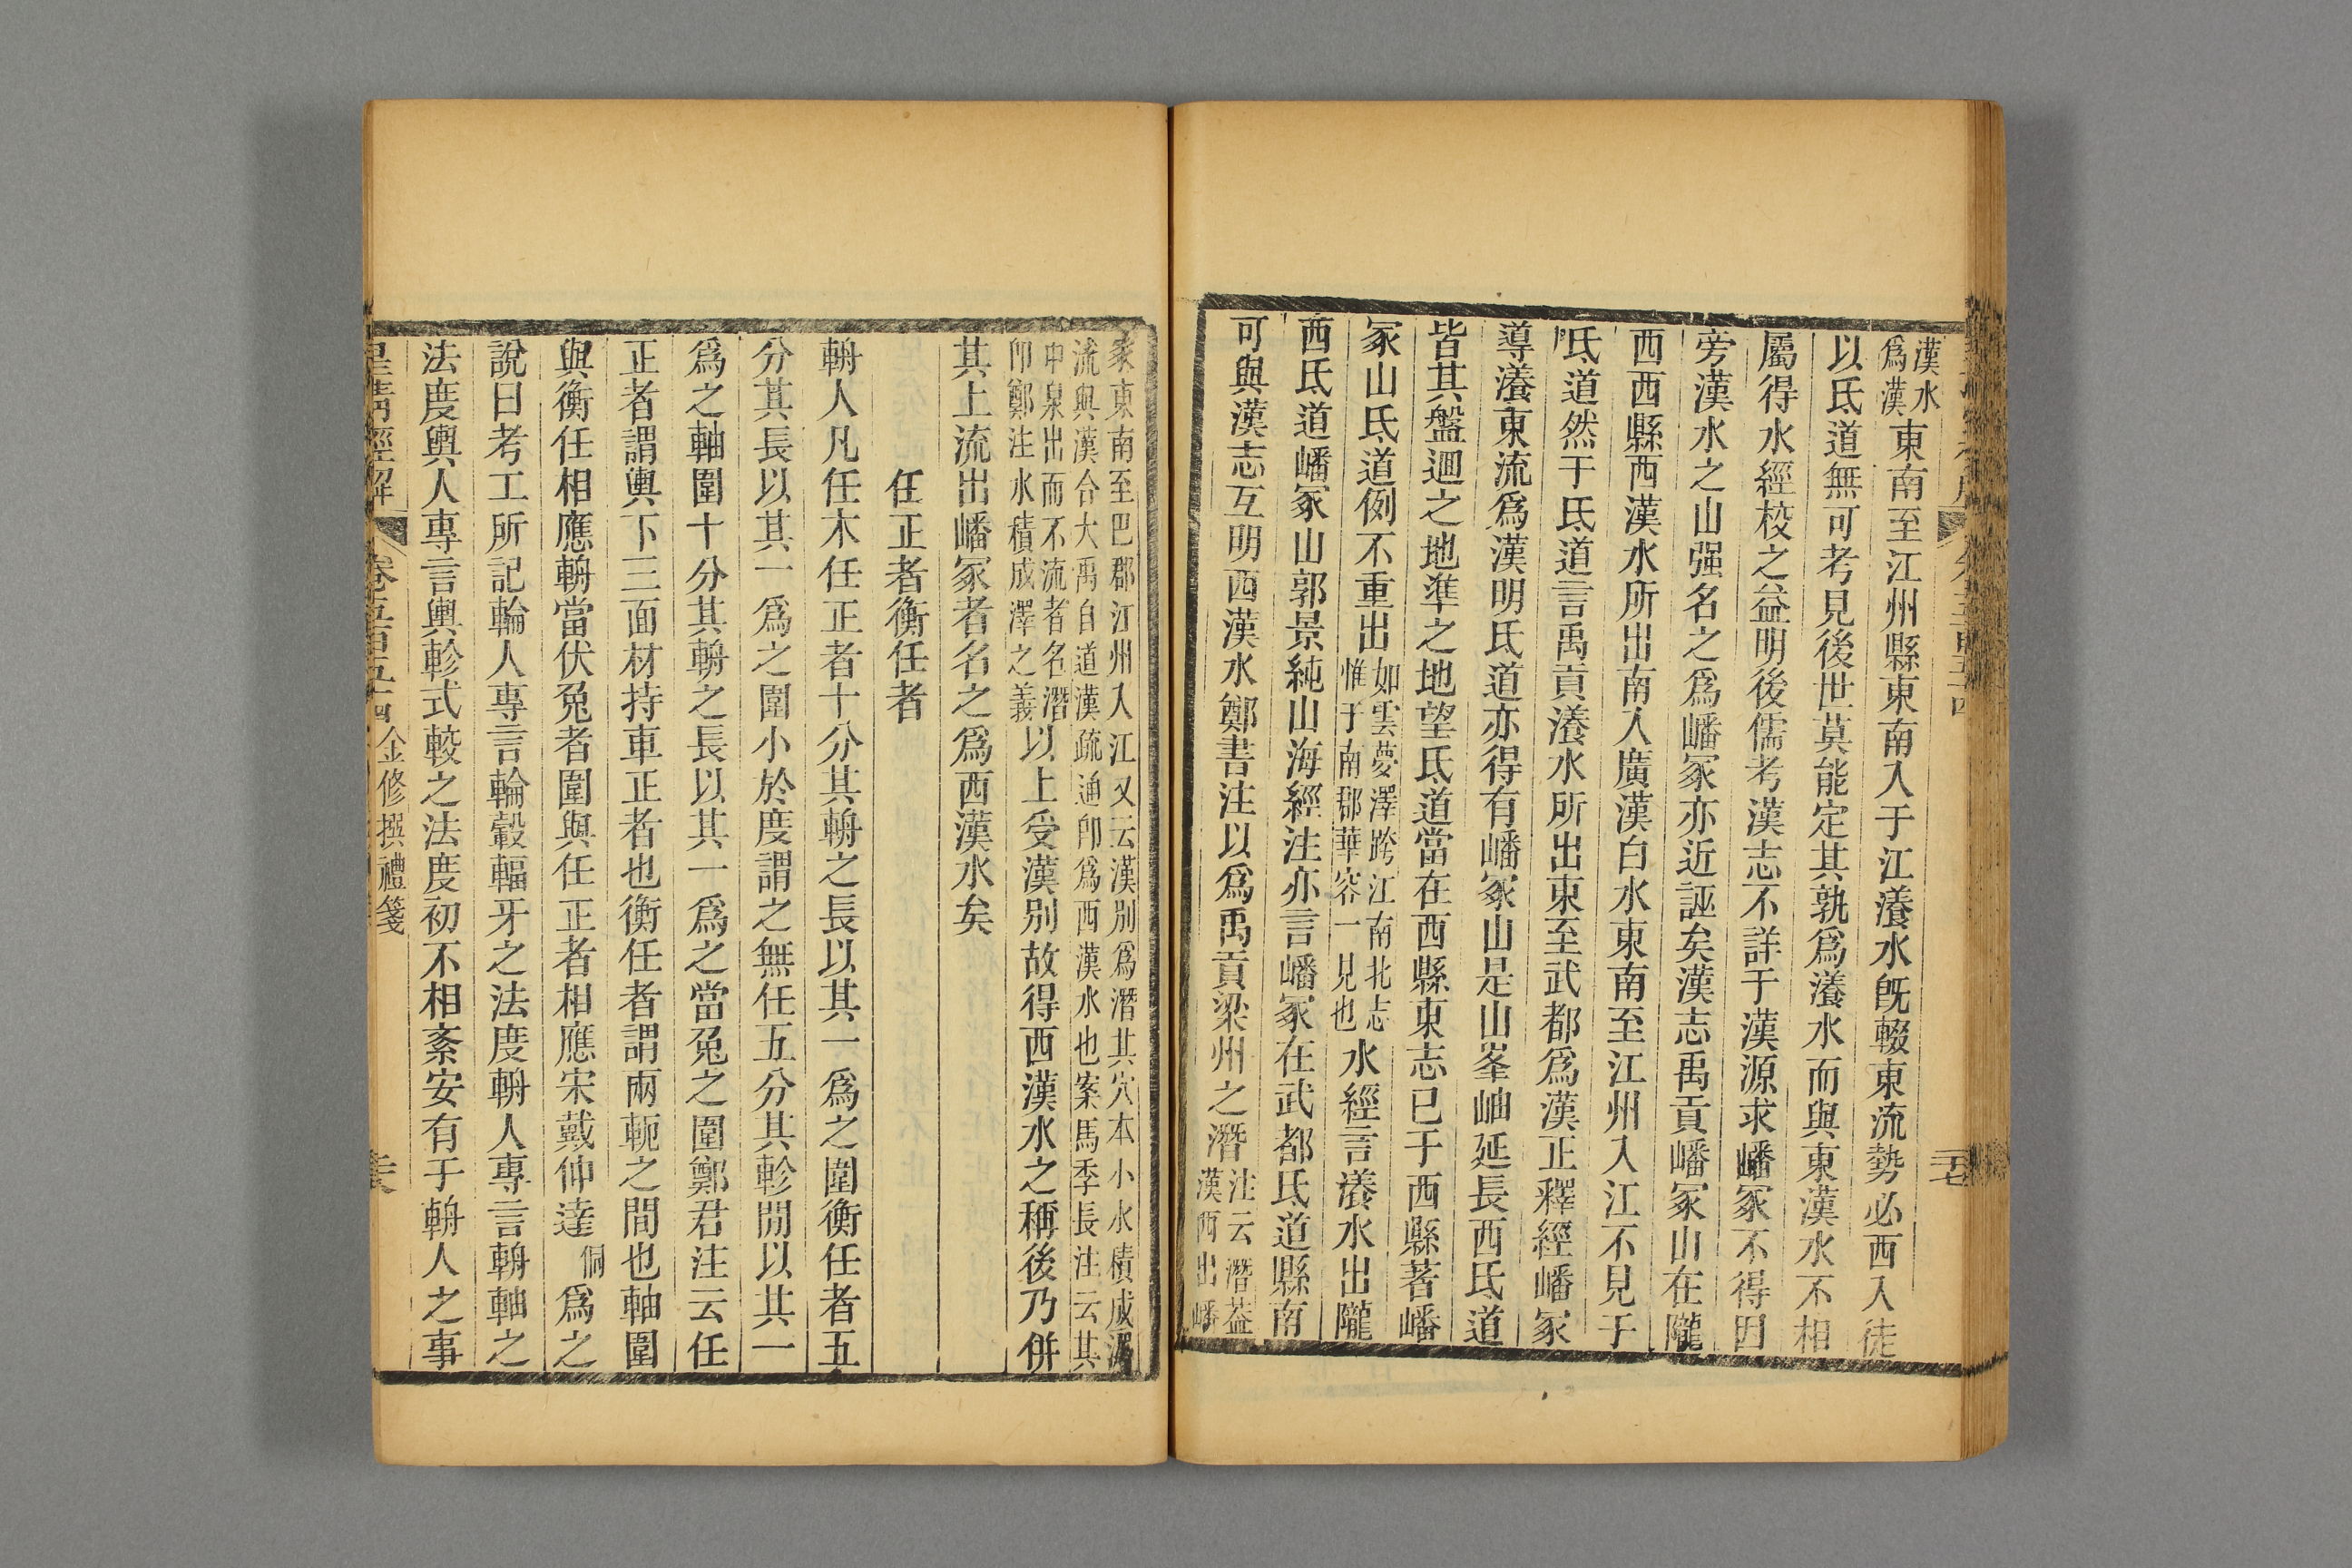 漢水
爲漢東南至江州縣東南入于江瀁水旣輟東流勢必西入徒
以氐道無可考見後世莫能定其孰爲瀁水而與東漢水不相
屬得水經校之益明後儒考漢志不詳于漢源求嶓冢不得因
旁漢水之山强名之爲嶓冢亦近誣矣漢志禹貢嶓冢山在隴
西西縣西漢水所出南入廣漢白水東南至江州入江不見于
氐道然于氐道言禹貢瀁水所出東至武都爲漢正釋經嶓冢
導瀁東流爲漢明氐道亦得有嶓冢山是山峯岫延長西氐道
皆其盤迴之地準之地望氐道當在西縣東志已于西縣著嶓
冢山氐道例不重出如雲夢澤跨江南北志
惟于南郡華容一見也水經言瀁水出隴
西氐道嶓冢山郭景純山海經注亦言嶓冢在武都氐道縣南
可與漢志互明西漢水鄭書注以爲禹貢梁州之潛注云潛蓋
漢西出嶓
冢東南至巴郡江州入江又云漢別爲潛其穴本小水積成澤
流與漢合大禹自道漢疏通卽爲西漢水也案馬季長注云其
中泉出而不流者名潛
卽鄭注水積成澤之義以上受漢別故得西漢水之稱後乃併
其上流出嶓冢者名之爲西漢水矣
任正者衡任者
輈人凡任木任正者十分其輈之長以其一爲之圍衡任者五
分其長以其一爲之圍小於度謂之無任五分其軫閒以其一
爲之軸圍十分其輈之長以其一爲之當兔之圍鄭君注云任
正者謂輿下三面材持車正者也衡任者謂兩軛之間也軸圍
與衡任相應輈當伏兔者圍與任正者相應宋戴仲達侗爲之
說曰考工所記輪人專言輪轂輻牙之法度輈人專言輈軸之
法度輿人專言輿軫式較之法度初不相紊安有于輈人之事
皇清經解
卷五百五十四
金修撰禮箋